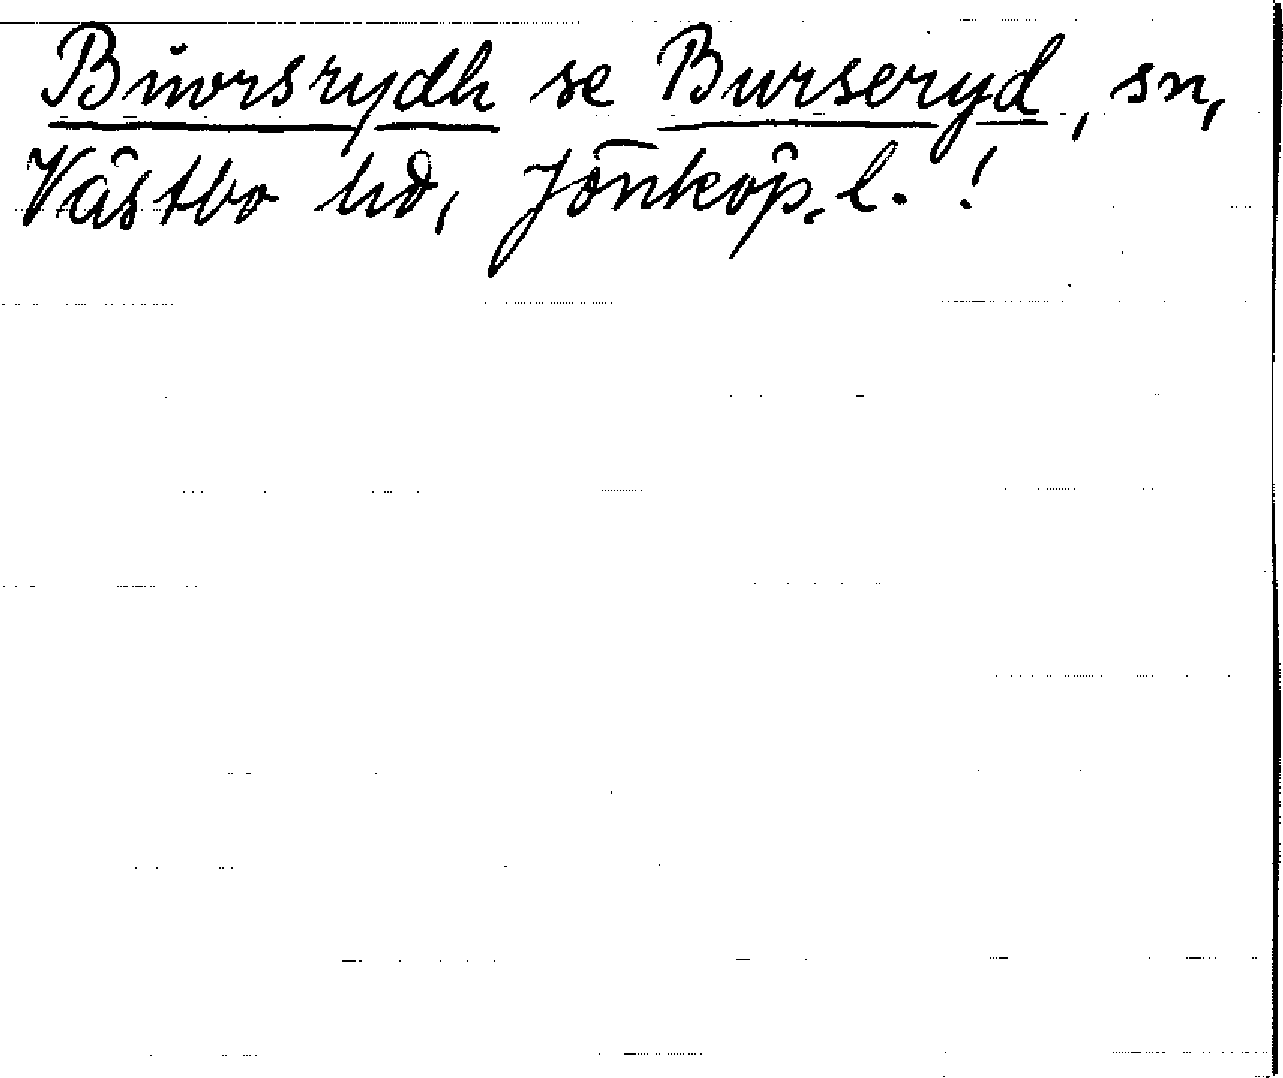 Biwrsrydh se Burseryd, sn,
Västbo hd, Jönköp. l. !